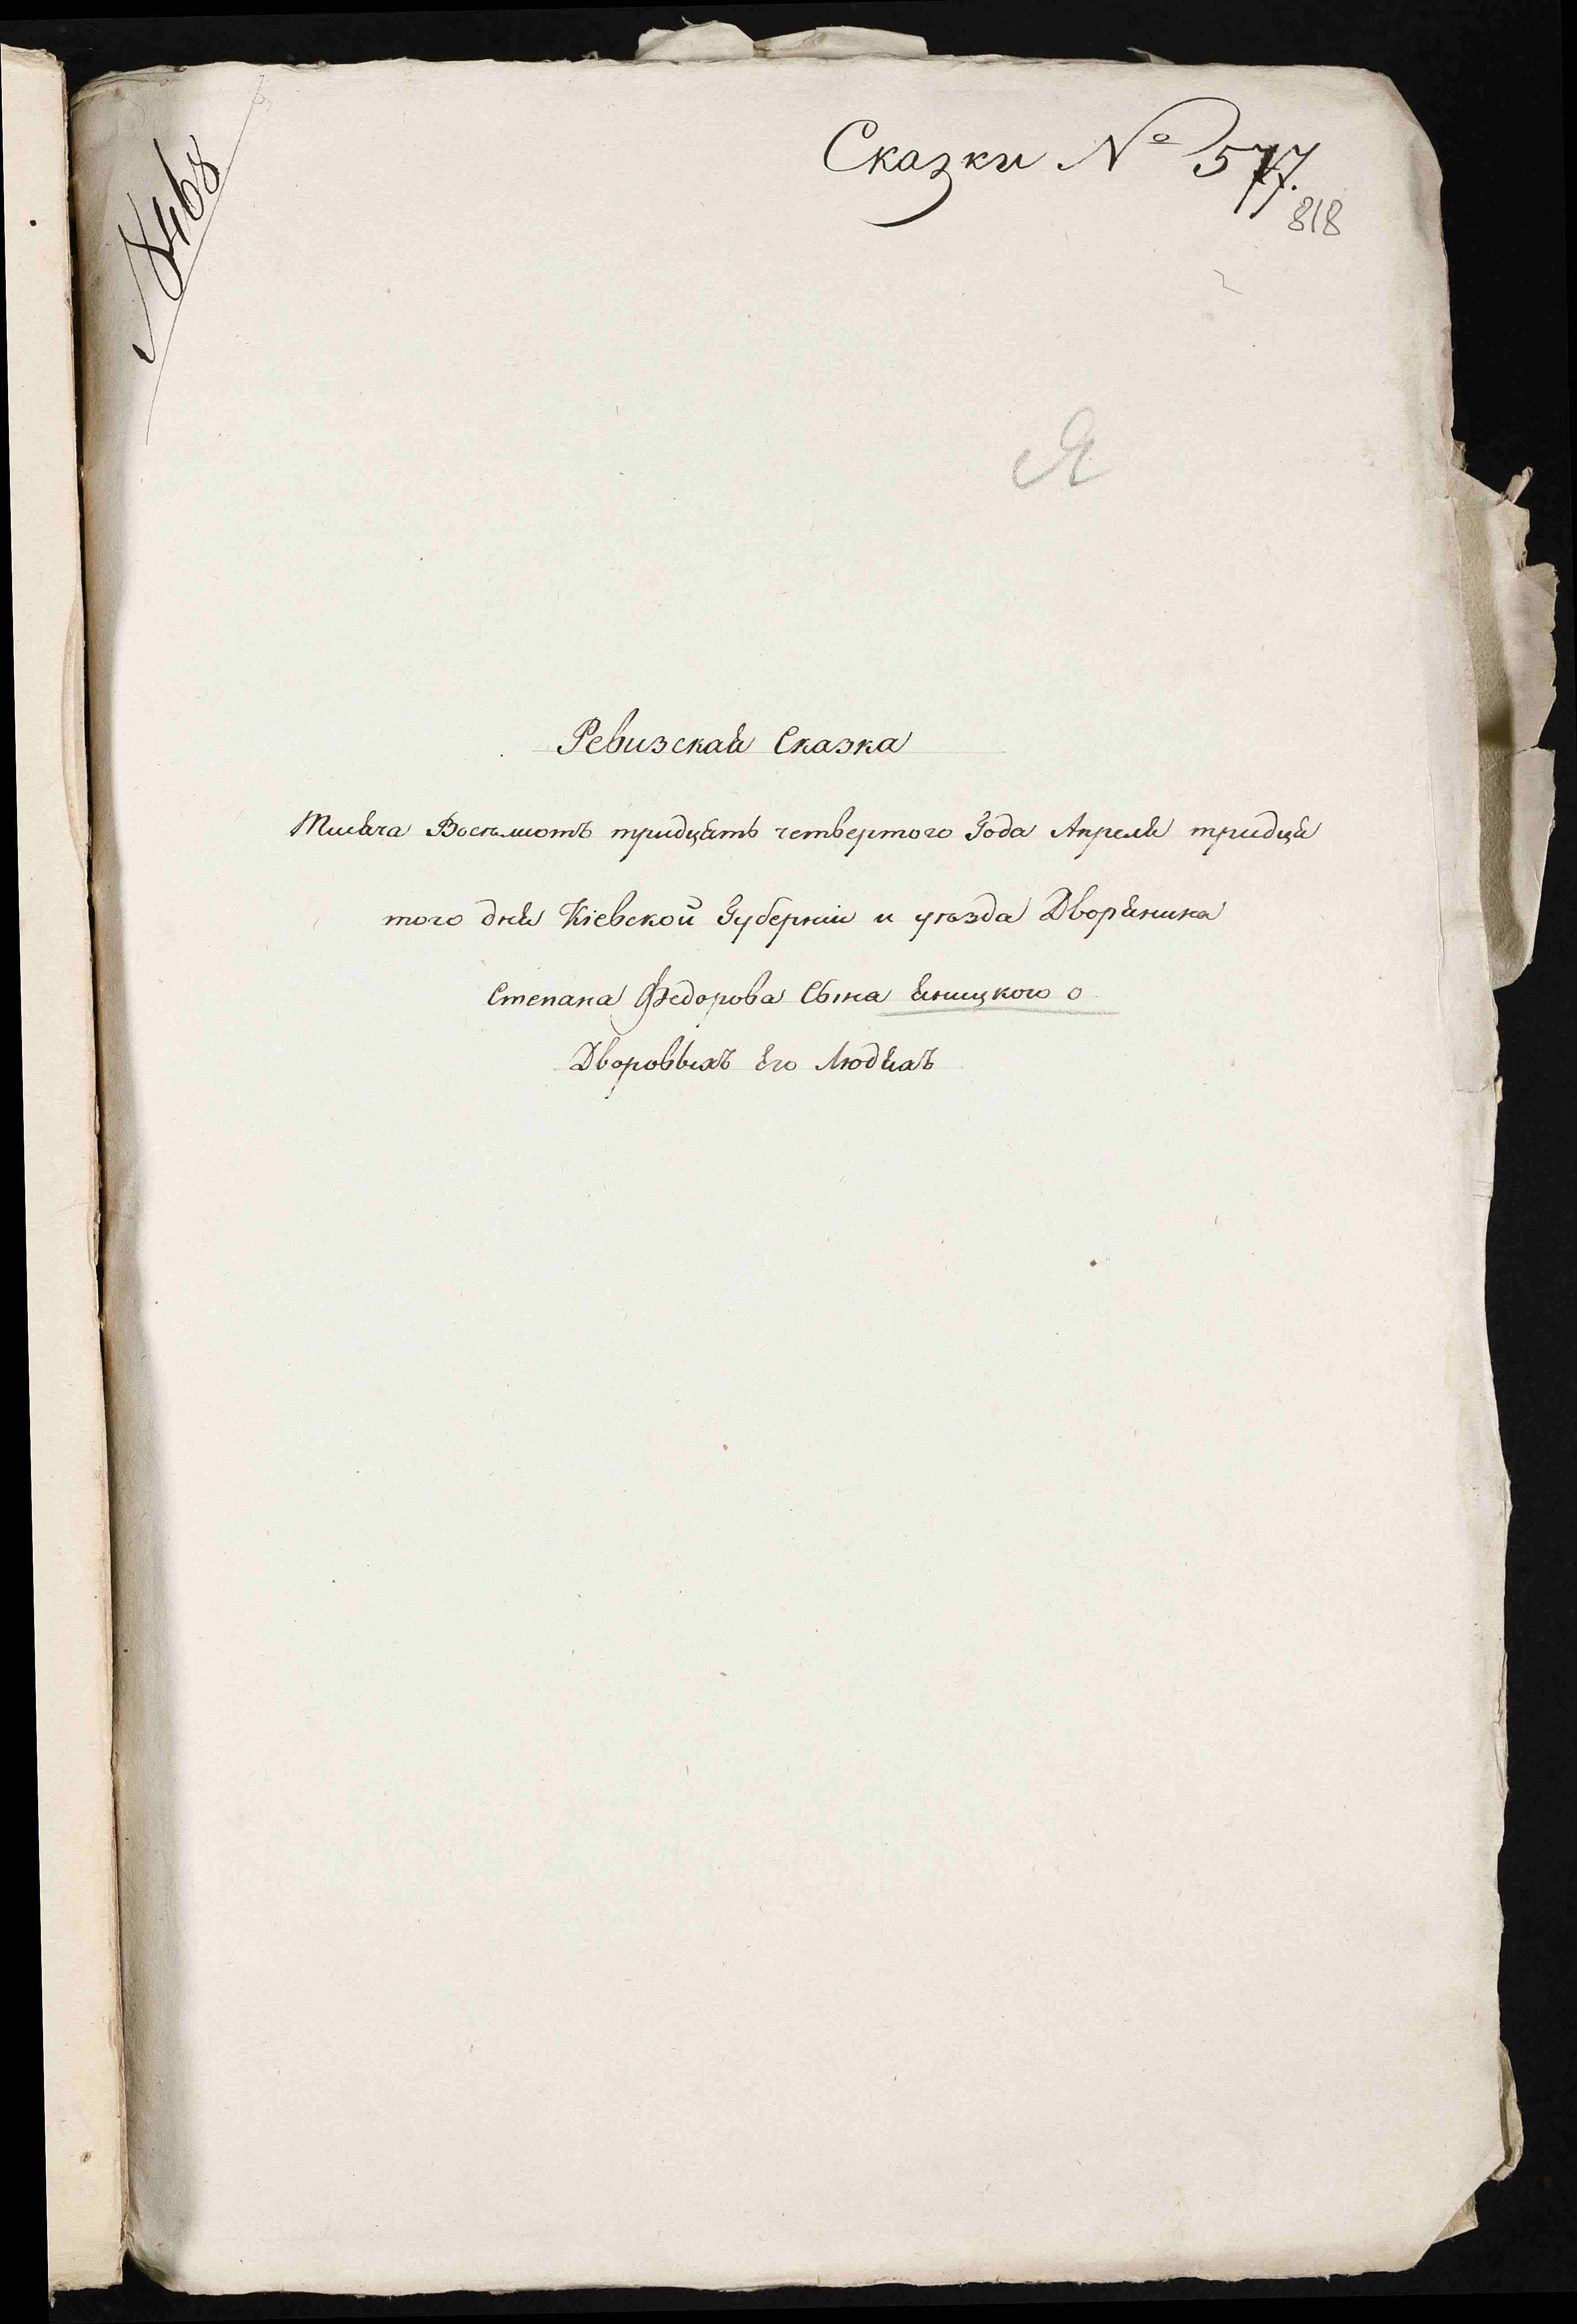 Сказки № 577.
818
№ 8468
Я
Ревизская Сказка
Тисяча Восемьсотъ тридцать четвертого Года Апреля тридця
того дня Кіевской Губерніи и уѣзда Дворянина
Степана Федорова Сына Яницкого о
Дворовыхъ Его Людяхъ